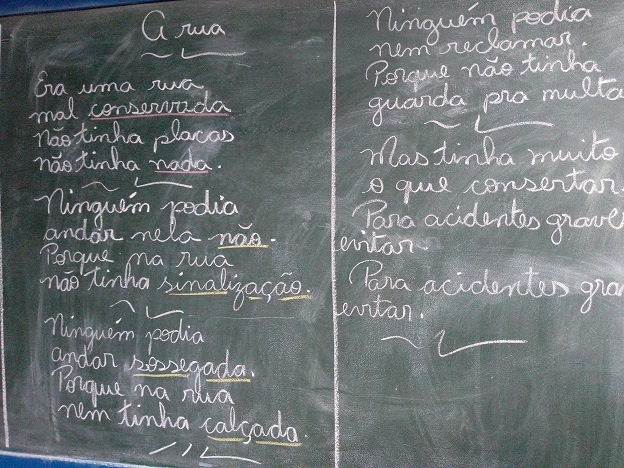 A rua
Era uma rua
mal conservada
não tinha placas
não tinha nada.
Ninguém podia
andar nela não.
Porque na rua
não tinha sinalização.
Ninguém podia
andar sossegada.
Porque na rua
nem tinha calçada.
Ninguém podia
nem reclamar.
Porque não tinha
guarda pra multa
Mas tinha muito
o que consertar.
Para acidentes grave
evitar.
Para acidentes gra
evitar.